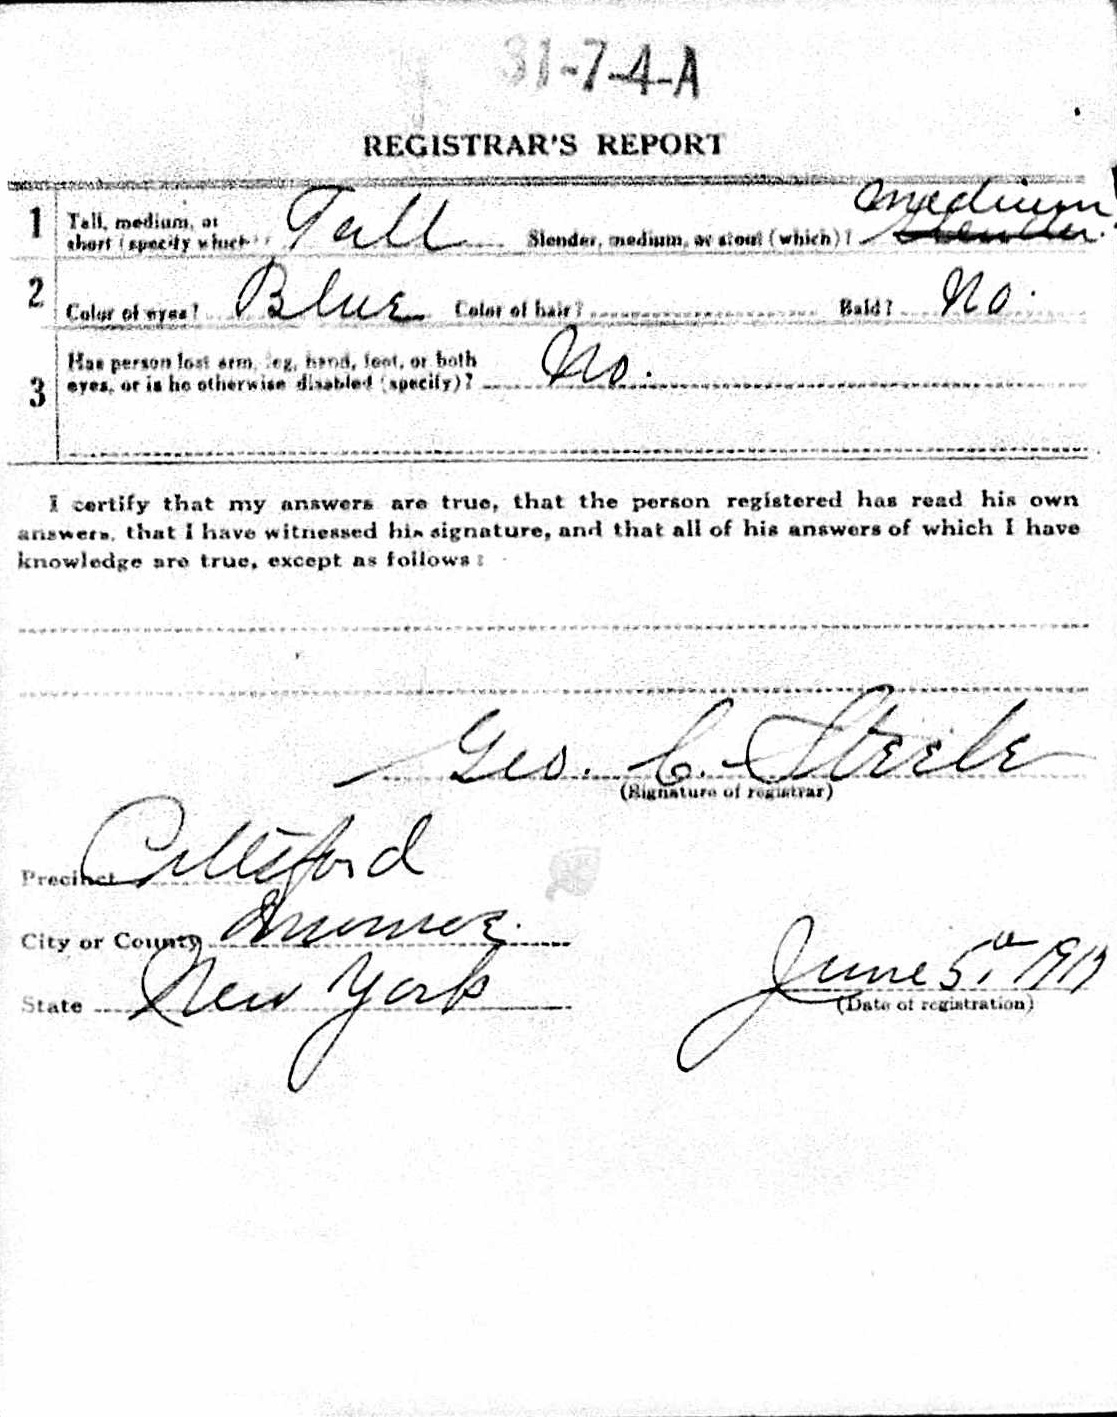 31-7-4-A
REGISTRAR'S REPORT
1 Tall, medium, or short (specify which)? Tall Slender, medium, or stout (which)? medium Slender.
2 Color of eyes? Blue Color of hair? Bald? No.
3 Has person lost arm, leg, hand, foot, or both
eyes, or is he otherwise disabled (specify)? No.
I certify that my answers are true, that the person registered has read his own
answers, that I have witnessed his signature, and that all of his answers of which I have
knowledge are true, except as follows:
Geo. C. Steele
(Signature of registrar)
Precinct Pittsford
City or County Monroe.
State New York
June 5th 1917
(Date of registration)